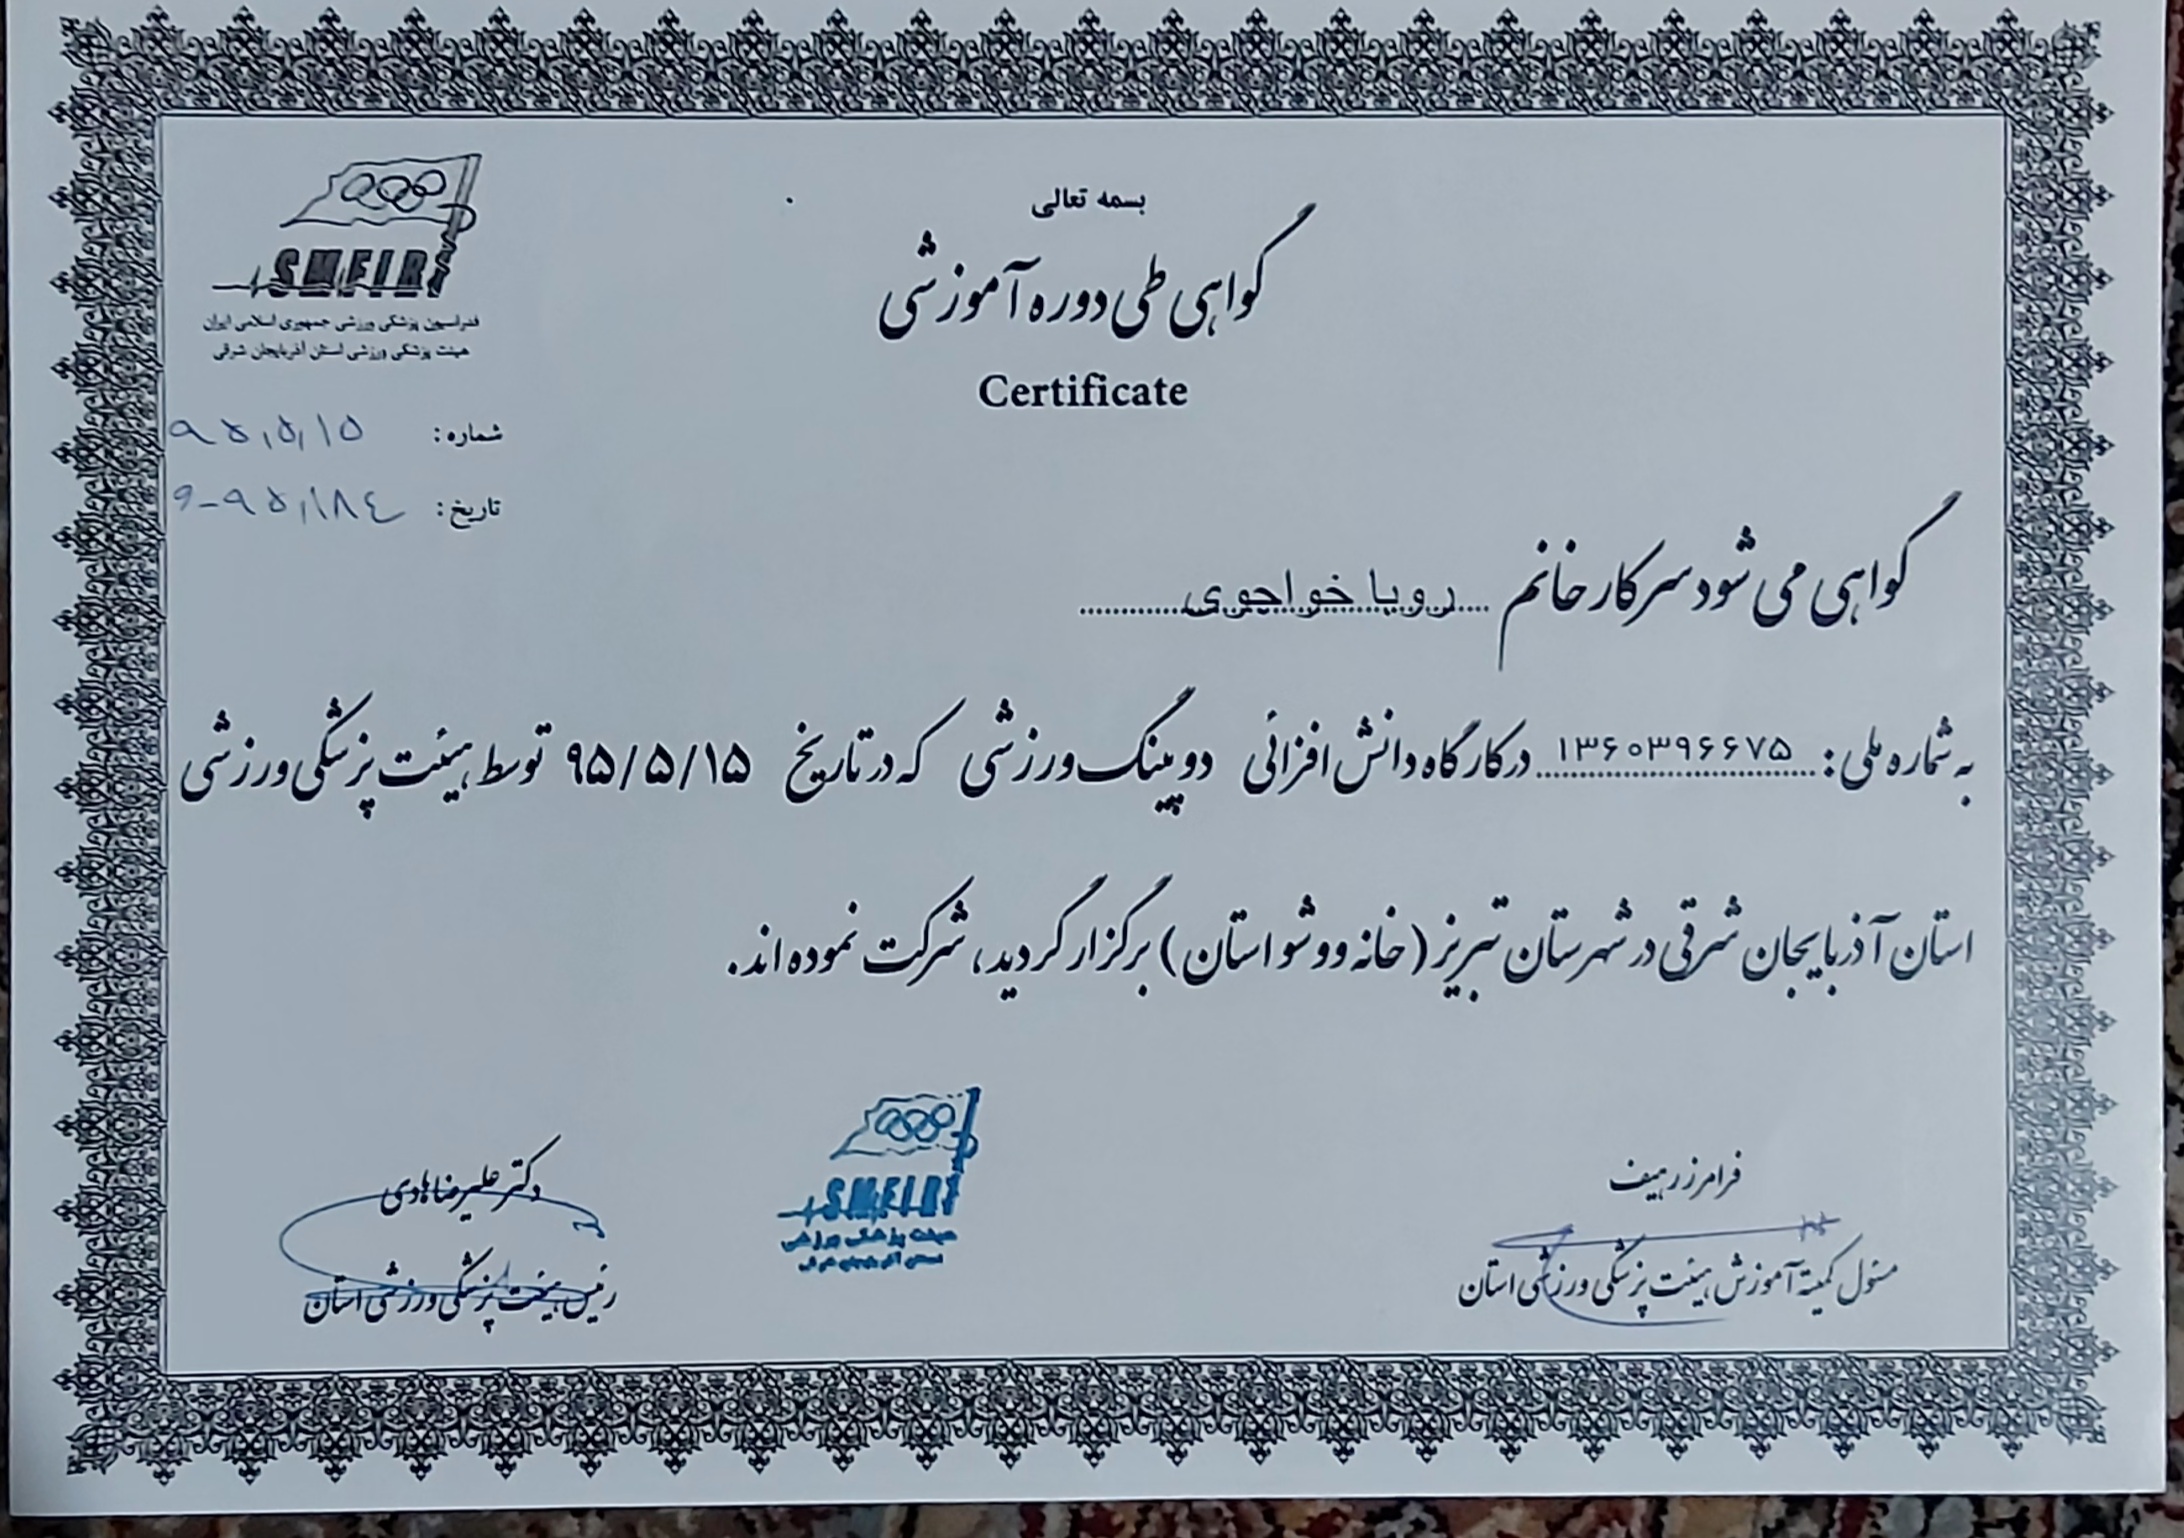 بسمه تعالی
گواهی طی دوره آموزشی
Certificate
SMFIRI
فدراسیون پزشکی ورزشی جمهوری اسلامی ایران
هیئت پزشکی ورزشی استان آذربایجان شرقی
شماره: ۹۵,۵,۱۵
تاریخ: ۹۵,۱۸۴-و
گواهی می شود سرکار خانم رویا خواجوی
به شماره ملی: ۱۳۶۰۳۹۶۶۷۵ در کارگاه دانش افزائی دوپینگ ورزشی که در تاریخ ۹۵/۵/۱۵ توسط هیئت پزشکی ورزشی
استان آذربایجان شرقی در شهرستان تبریز (خانه ووشو استان) برگزار گردید، شرکت نموده اند.
فرامرز رهیف
مسئول کمیته آموزش هیئت پزشکی ورزشی استان
SMFIRI
هیئت پزشکی ورزشی
استان آذربایجان شرقی
دکتر علیرضا هادی
رئیس هیئت پزشکی ورزشی استان